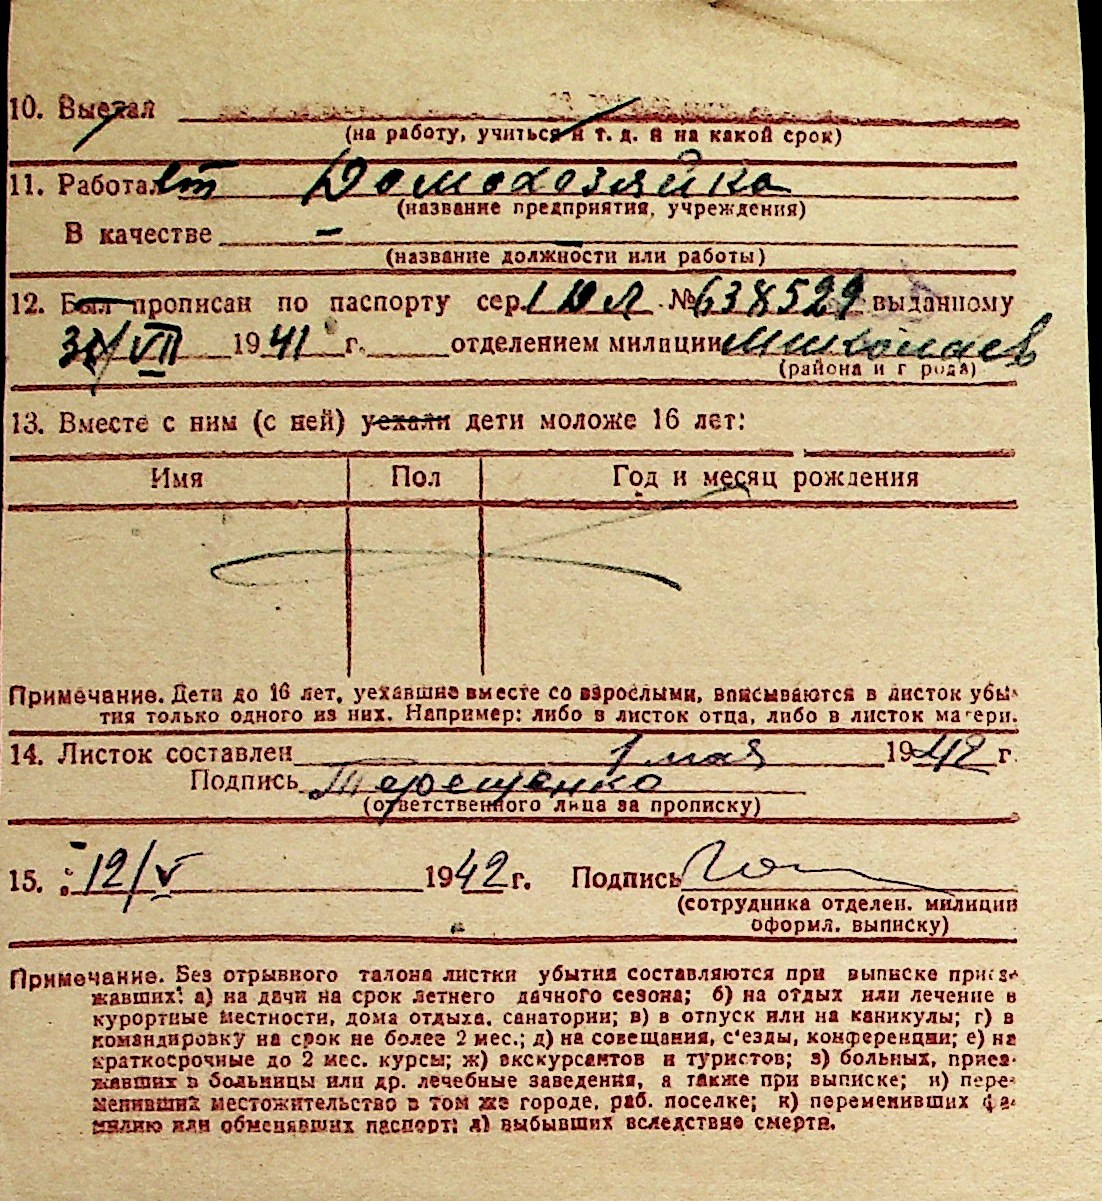 10. Выехал
(на работу, учиться и т. д. и на какой срок)
11. Работает Домохозяйка
(название предприятия, учреждения)
В качестве —
(название должности или работы)
12. Был прописан по паспорту сер. № 638529 выданному
VII 1941 г. отделением милиции
(района и города)
13. Вместе с ним (с ней) уехали дети моложе 16 лет:
Имя Пол Год и месяц рождения
Примечание. Дети до 16 лет, уехавшие вместе со взрослыми, вписываются в листок убы-
тия только одного из них. Например: либо в листок отца, либо в листок матери.
14. Листок составлен 1 мая 1942 г.
Подпись Терещенко
(ответственного лица за прописку)
15. 12/V 1942 г. Подпись
(сотрудника отделен. милиции
оформл. выписку)
Примечание. Без отрывного талона листки убытия составляются при выписке приез-
жавших: а) на дачи на срок летнего дачного сезона; б) на отдых или лечение в
курортные местности, дома отдыха, санатории; в) в отпуск или на каникулы; г) в
командировку на срок не более 2 мес.; д) на совещания, с'езды, конференции; е) на
краткосрочные до 2 мес. курсы; ж) экскурсантов и туристов; з) больных, приез-
жавших в больницы или др. лечебные заведения, а также при выписке; и) пере-
менивших местожительство в том же городе, раб. поселке; к) переменивших фа-
милию или обменявших паспорт; л) выбывших вследствие смерти.